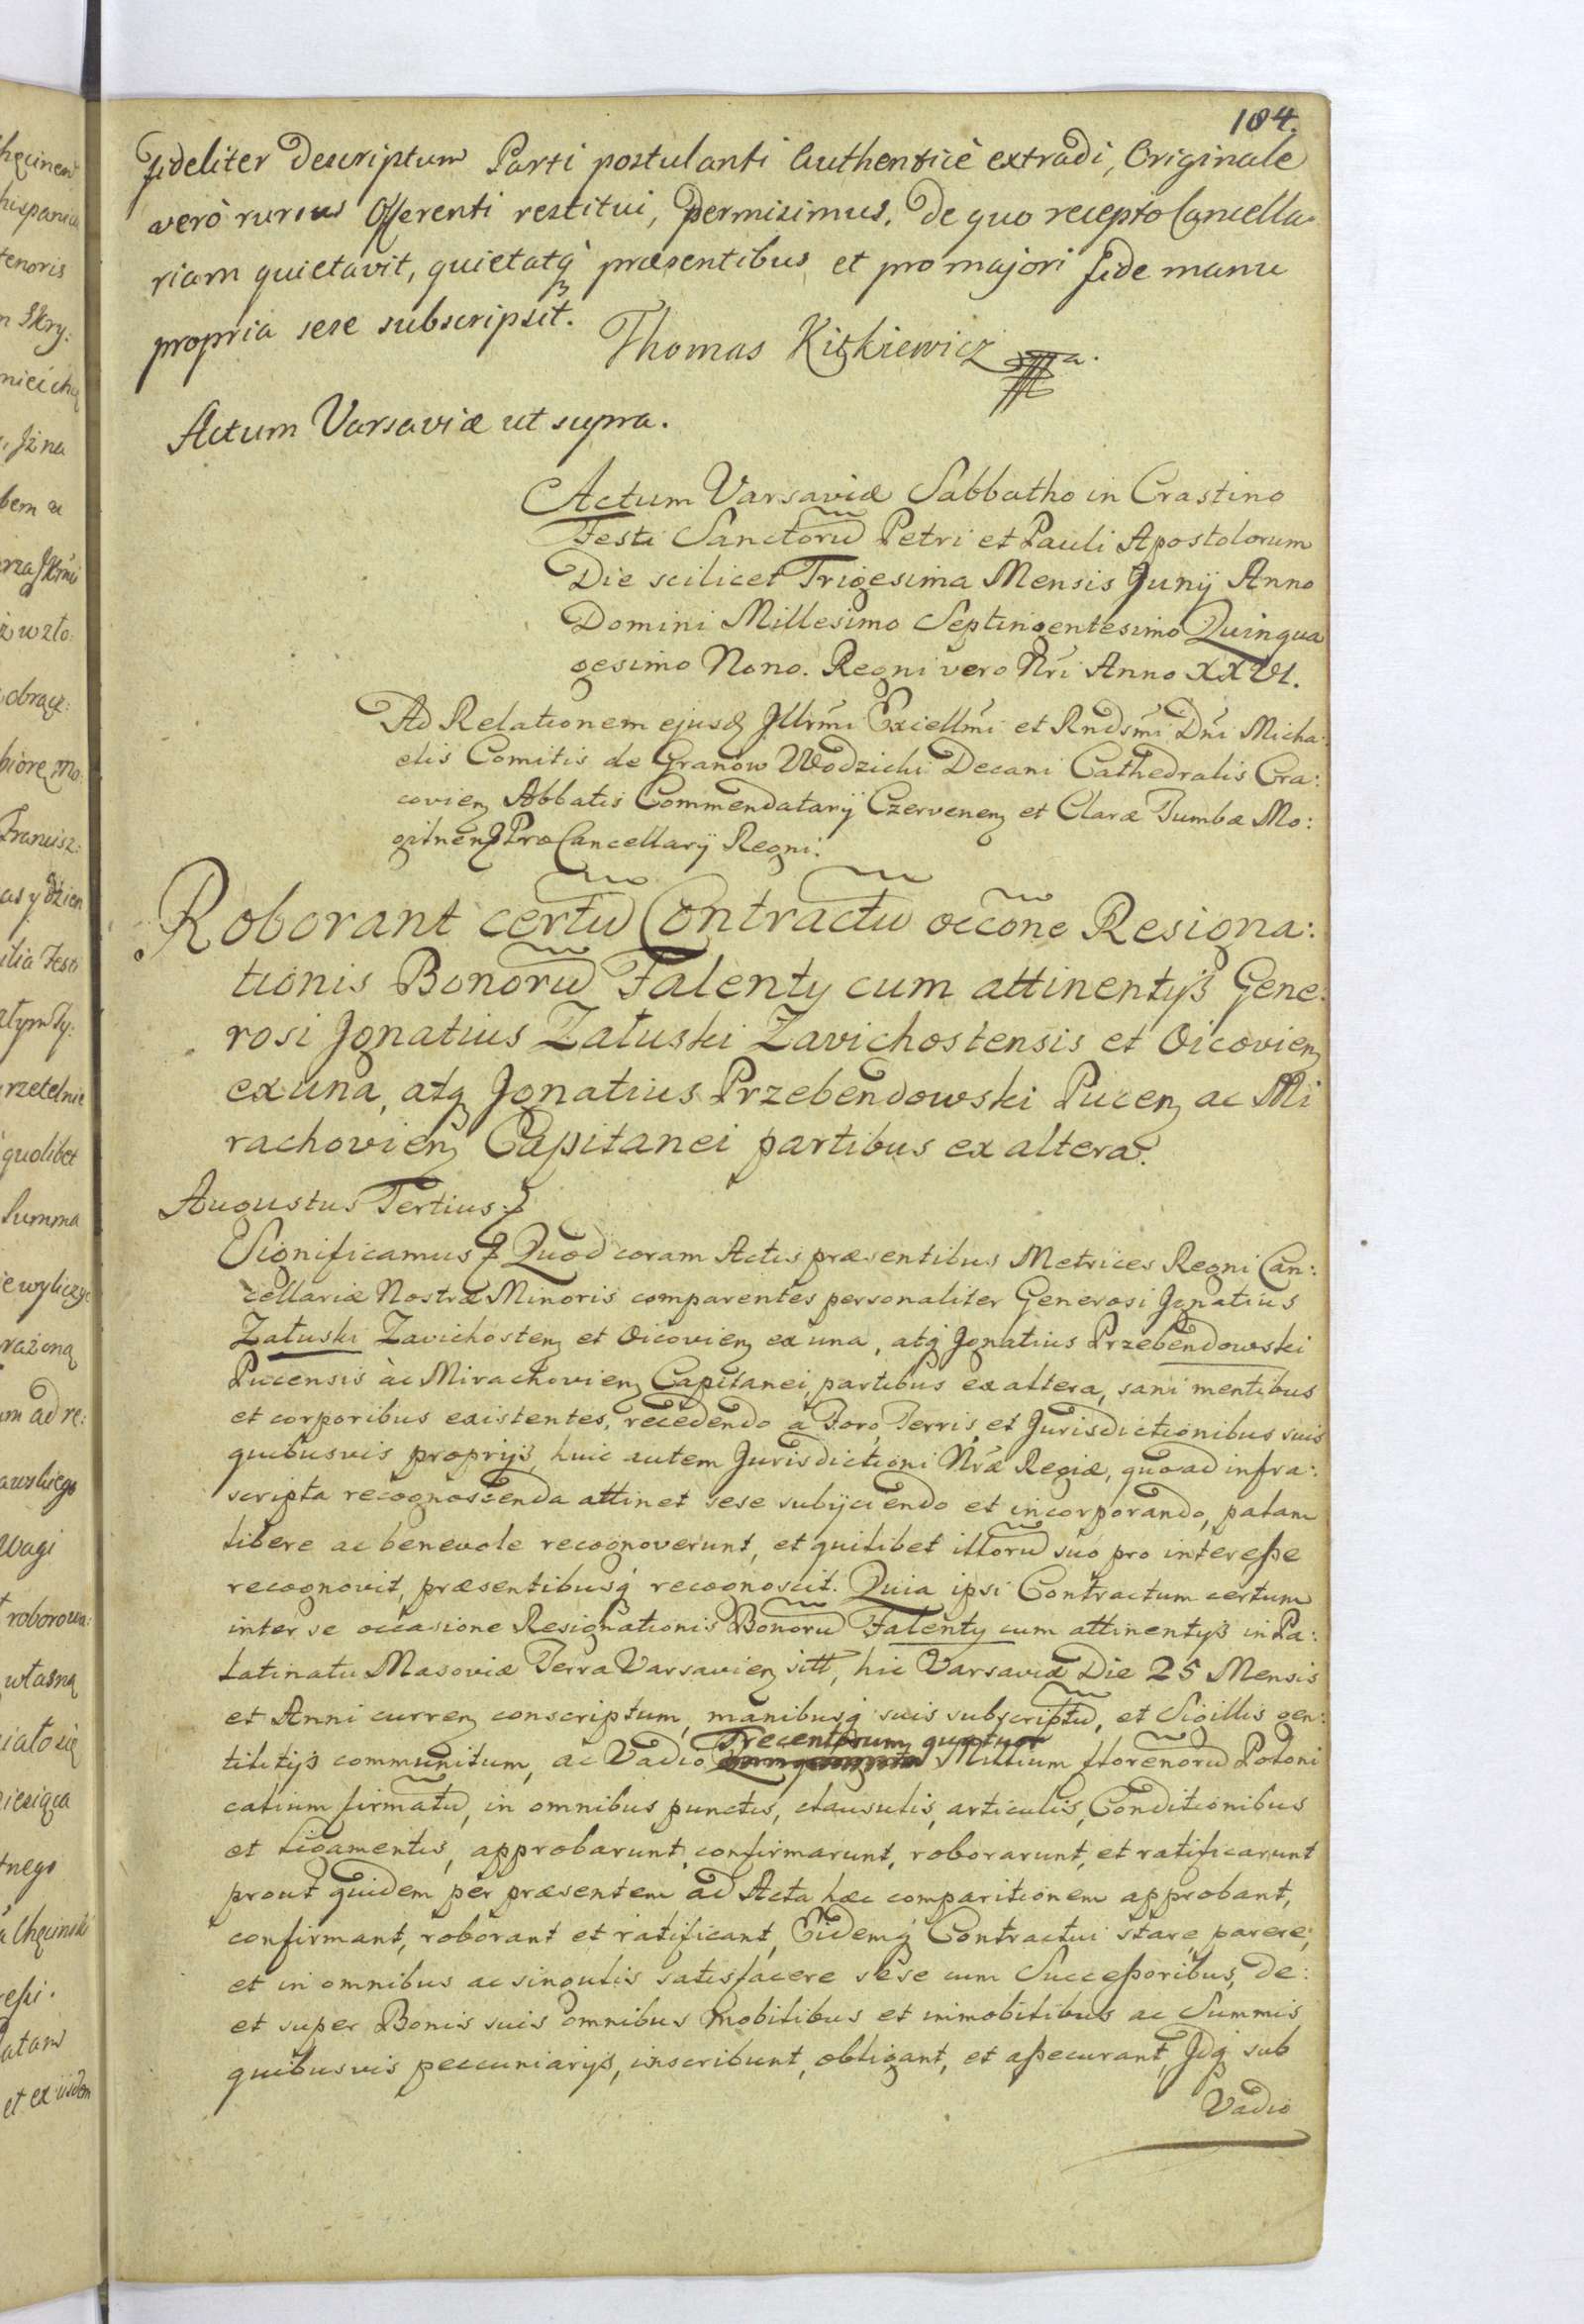 104.
fideliter descriptum Parti postulanti Authenticè extradi, Originale
verò rursus Offerenti restitui, permisimus. De quo recepto Cancella-
riam quietavit, quietatq́ præsentibus et pro majori fide manu
propria sese subscripsit. Thomas Kiţkiewicz mpa.
Actum Varsaviæ ut supra.
Actum Varsaviæ Sabbatho in Crastino
Festi Sanctorũ Petri et Pauli Apostolorum
Die scilicet Trigesima Mensis Junij Anno
Domini Millesimo Septingentesimo Quinqua
gesimo Nono. Regni vero Nri Anno XXVI.
Ad Relationem ejusq Jllrmi Excellmi et Rndsmi Dni Micha:
elis Comitis de Granow Wodzicki Decani Cathedralis Cra:
covien Abbatis Commendatarij Czervenen et Claræ Tumbæ Mo:
gitnen ProCancellarij Regni.
Roborant certũ Contractũ occõne Resigna:
tionis Bonorũ Falenty cum attinentijs Gene:
rosi Jgnatius Załuski Zavichostensis et Oicovien
ex una, atq Jgnatius Przebendowski Pucen ac Mi
rachovien Capitanei partibus ex altera.
Augustus Tertius.
Significamus Quod coram Actis præsentibus Metrices Regni Can:
cellariæ Nostræ Minoris comparentes personaliter Generosi Jgnatius
Załuski Zavichosten et Oicovien ex una, atq́ Jgnatius Przebendowski
Pucensis ac Mirachovien Capitanei, partibus ex altera, sani mentibus
et corporibus existentes, recedendo a Foro, Terris, et Jurisdictionibus suis
quibusvis proprijs, huic autem Jurisdictioni Nrã Regiæ, quoad infra:
scripta recognoscenda attinet sese subijciendo et incorporando, palam
libere ac benevole recognoverunt, et quilibet illorũ suo pro interesse
recognovit, præsentibusq́ recognoscit. Quia ipsi Contractum certum
inter se occasione Resignationis Bonorũ Falenty cum attinentijs in Pa:
latinatu Masoviæ Terra Varsavien sitt, hic Varsaviæ Die 25 Mensis
et Anni curren conscriptum, manibusq́ suis subscriptũ, et Sigillis gen:
tilitijs communitum, ac Vadio Trecentorum quatuor Millium florenorũ Poloni
calium firmatũ, in omnibus punctis, clausulis, articulis, Conditionibus
et ligamentis, approbarunt, confirmarunt, roborarunt, et ratificarunt
prout quidem per præsentem ad Acta hæc comparitionem approbant,
confirmant, roborant et ratificant, Eidemq́ Contractui stare, parere,
et in omnibus ac singulis satisfacere sese cum Successoribus, de:
et super Bonis suis omnibus mobilibus et immobilibus ac Summis
quibusvis peccuniarijs, inscribunt, obligant, et assecurant, Jdq́ sub
Vadio